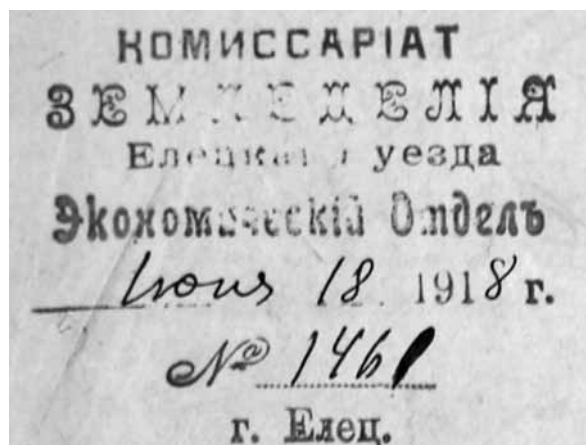 КОМИССАРІАТ
ЗЕМЛЕДЕЛІЯ
Елецкаго уезда
Экономическій Отделъ
Июня 18 1918 г.
№ 1461
г. Елец.